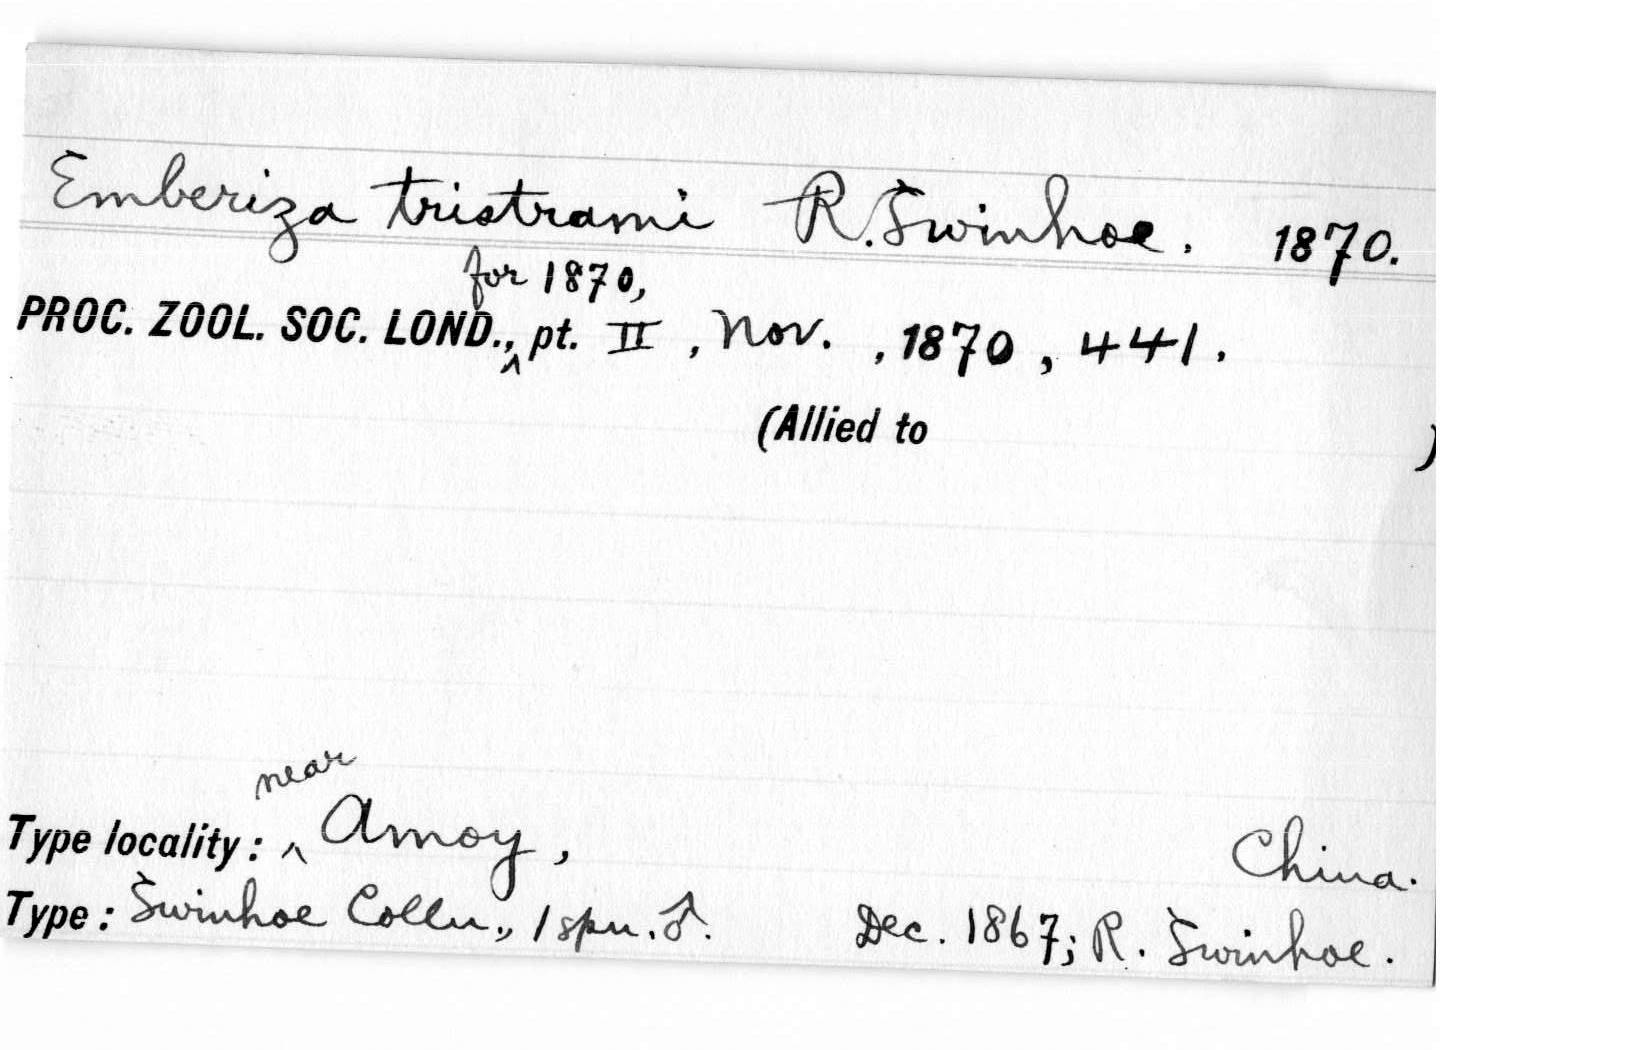 Emberiza tristrami R. Swinhoe. 1870.
for 1870,
PROC. ZOOL. SOC. LOND., ^ pt. II, Nov. , 1870, 441.
(Allied to )
near
Type locality: ^ Amoy, China.
Type: Swinhoe Colln., 1 spn. ♂. Dec. 1867; R. Swinhoe.